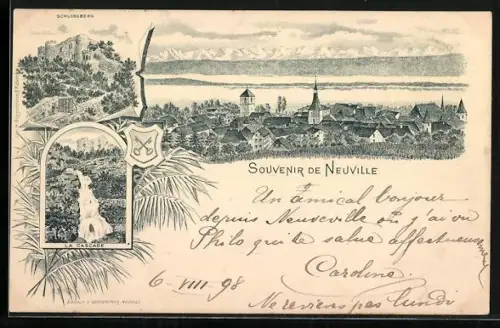 SCHLOSSBERG
SOUVENIR DE NEUVILLE
LA CASCADE
Un amical bonjour
depuis Neuveville où j'ai vu
Philo qui te salue affectueusement
Caroline
6 VIII 98
Ne reviens pas lundi